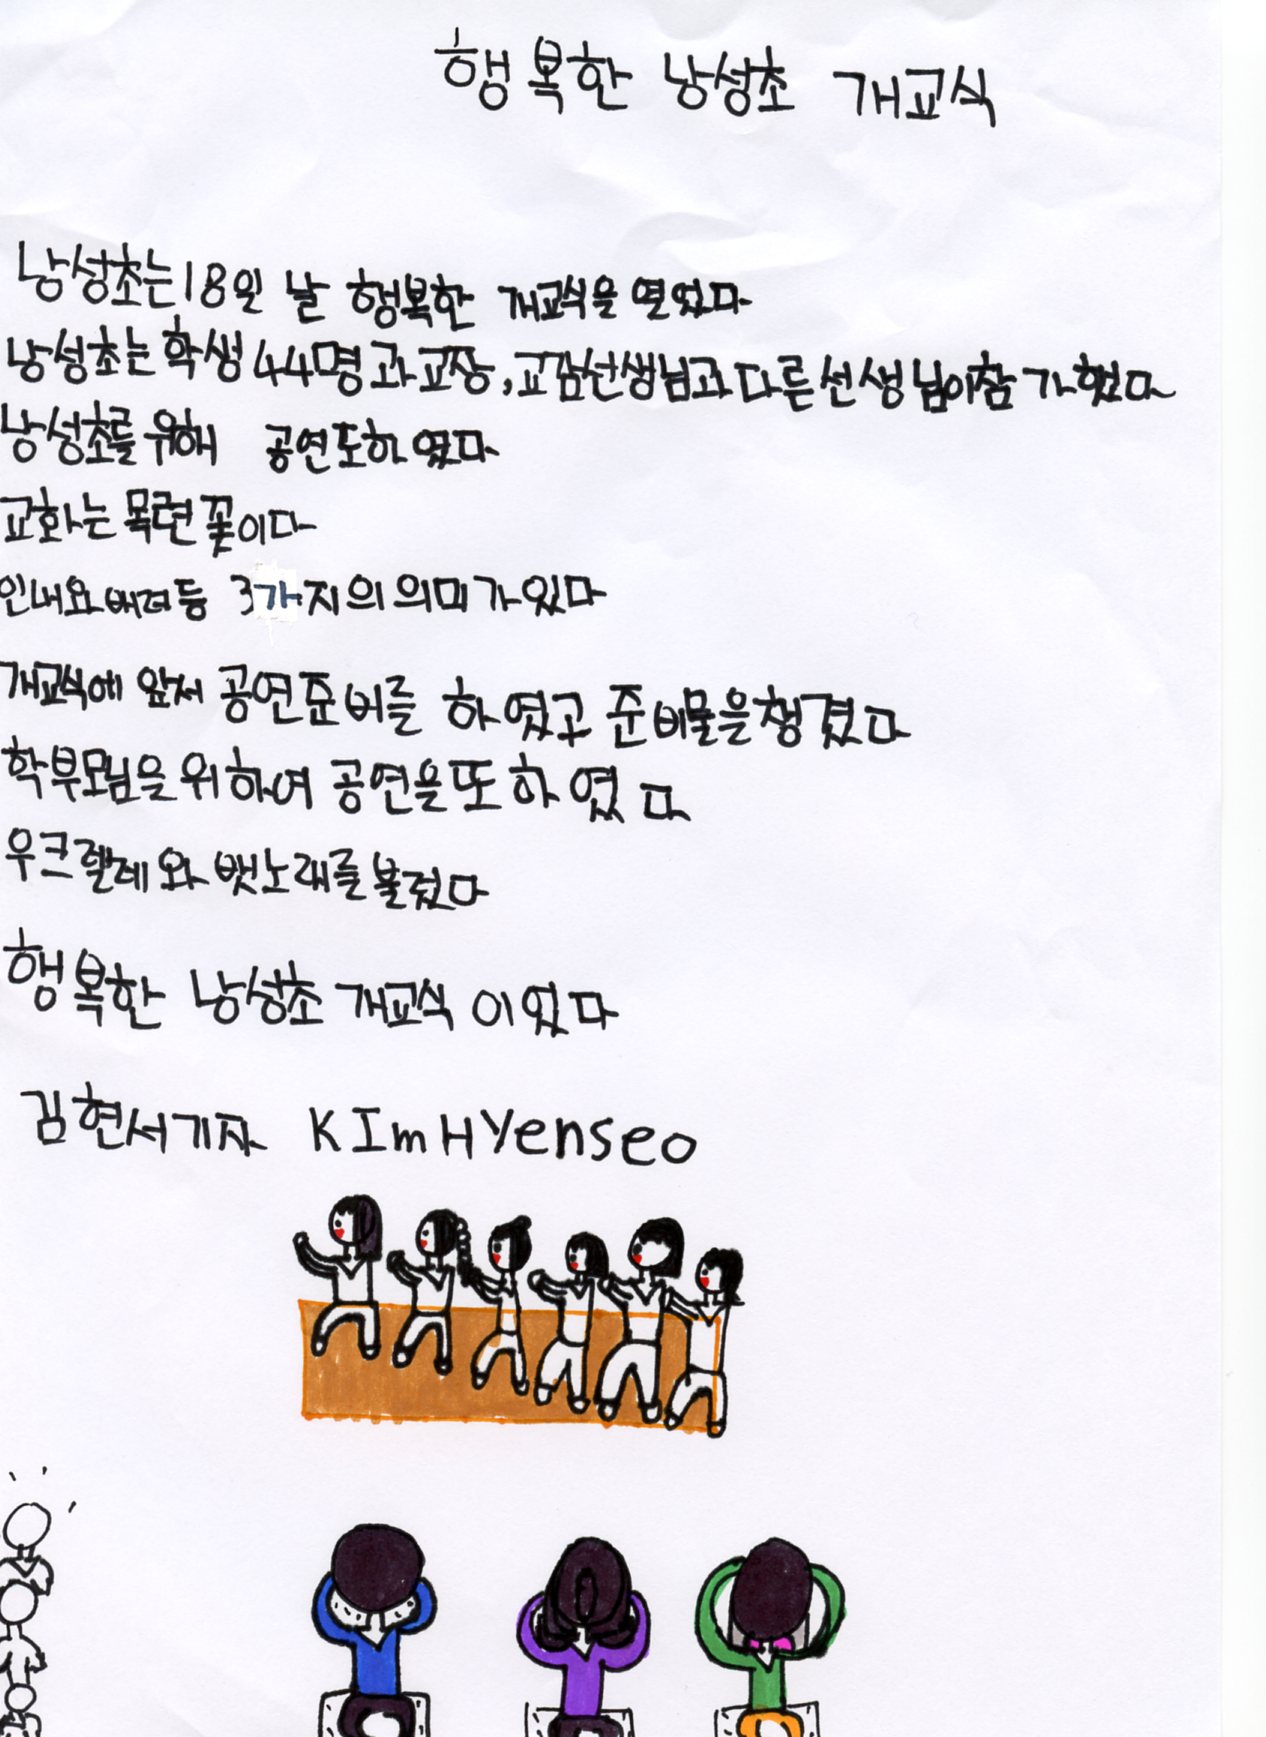 행복한 낭성초 개교식
낭성초는 18일 날 행복한 개교식을 열었다
낭성초는 학생 44명과 교장, 교감선생님과 다른 선생님이 참가했다
낭성초를 위해 공연도 하였다
교화는 목련꽃이다
인내와 배려 등 3가지의 의미가 있다
개교식에 앞서 공연준비를 하였고 준비물을 챙겼다
학부모님을 위하여 공연을 또 하였다
우크렐레와 뱃노래를 불렀다
행복한 낭성초 개교식이었다
김현서기자 KImHYenseo